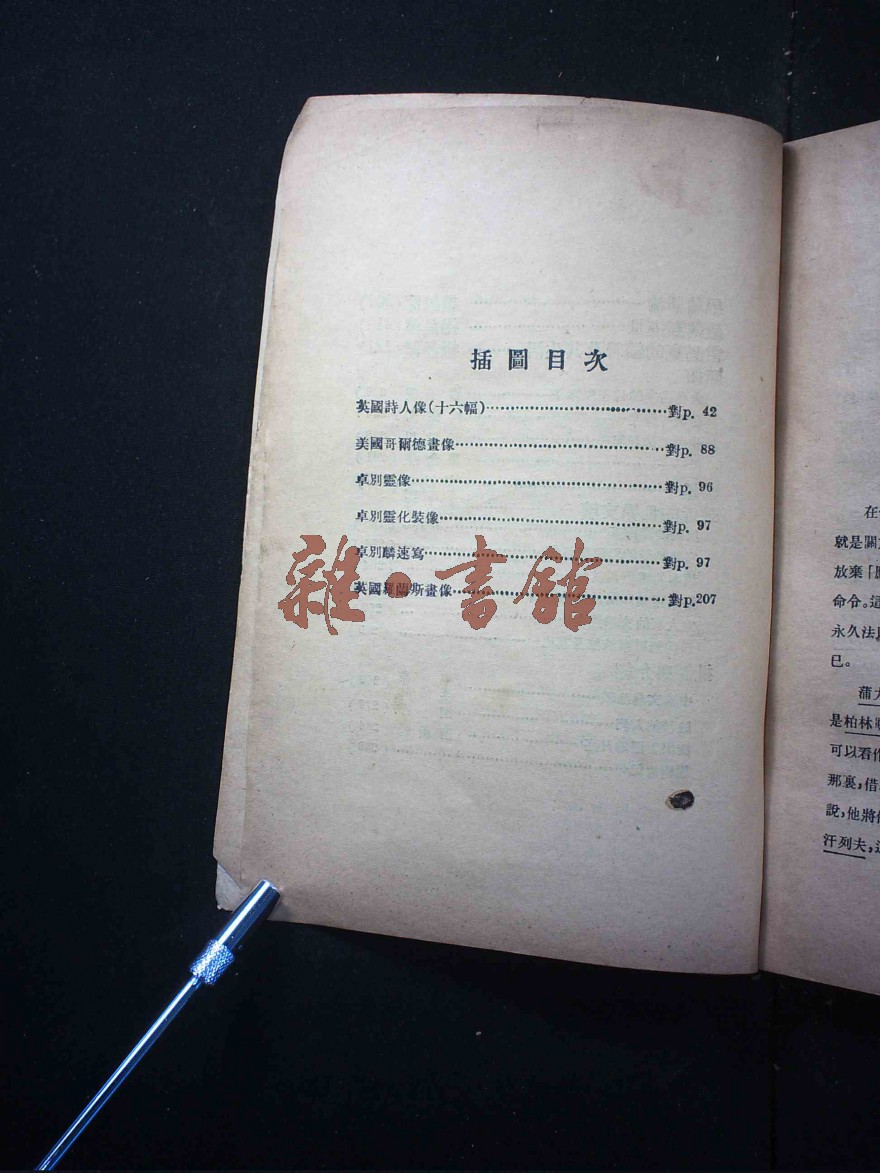 插圖目次
英國詩人像(十六幅)……………………對p. 42
美國哥爾德畫像……………………對p. 88
卓別靈像……………………對p. 96
卓別靈化裝像……………………對p. 97
卓別麟速寫……………………對p. 97
英國羅蘭斯畫像……………………對p.207
雜·書館
在
就是關
放棄「
命令。這
永久法
已。
蒲
是柏林
可以看作
那裏,借
說,他將
汗列夫,